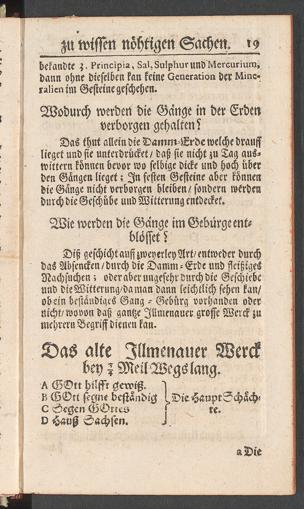 zu wissen nöhtigen Sachen. 19
bekandte 3. Principia, Sal, Sulphur und Mercurium,
dann ohne dieselben kan keine Generation der Mine-
ralien im Gesteine geschehen.
Wodurch werden die Gänge in der Erden
verborgen gehalten?
Das thut allein die Damm-Erde welche drauff
lieget und sie unterdrücket / daß sie nicht zu Tag aus-
wittern können bevor wo selbige dicke und hoch über
den Gängen lieget; In festen Gesteine aber können
die Gänge nicht verborgen bleiben / sondern werden
durch die Geschübe und Witterung entdecket.
Wie werden die Gänge im Gebürge ent-
blösset?
Diß geschicht auff zweyerley Art / entweder durch
das Absencken / durch die Damm-Erde und fleißiges
Nachsuchen; oder aber ungefehr durch die Geschiebe
und die Witterung / da man dann leichtlich sehen kan /
ob ein beständiges Gang-Gebürg vorhanden oder
nicht / wovon daß gantze Jllmenauer grosse Werck zu
mehrern Begriff dienen kan.
Das alte Jllmenauer Werck
bey 3/4 Meil Wegs lang.
A GOtt hilfft gewiß.
B GOtt segne beständig } Die Haupt Schäch-
C Segen GOttes te.
D Hauß Sachsen.
a Die